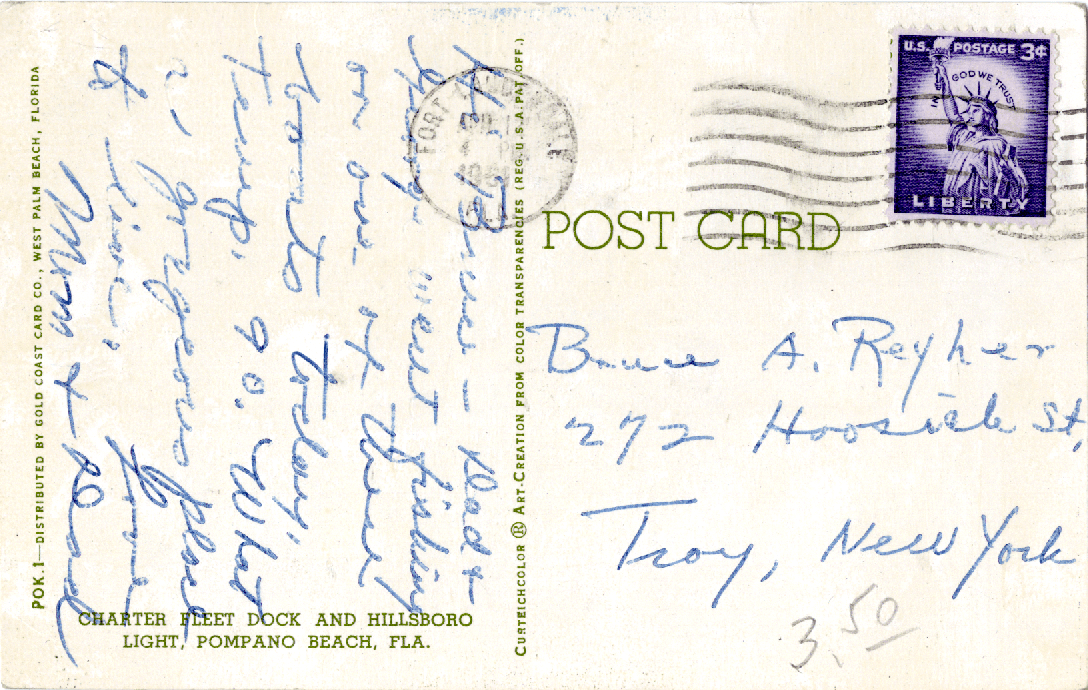 POK.1—DISTRIBUTED BY GOLD COAST CARD CO., WEST PALM BEACH, FLORIDA
Hi Bruce – Dad &
Gary went fishing
on one of these
boats today.
Temp. 90. What
a gorgeous place
to live.
Love
Mom & Dad
CHARTER FLEET DOCK AND HILLSBORO
LIGHT, POMPANO BEACH, FLA.
CURTEICHCOLOR ® ART-CREATION FROM COLOR TRANSPARENCIES (REG. U.S.A. PAT. OFF.)
FORT LAUDERDALE
U.S. POSTAGE 3¢
IN GOD WE TRUST
LIBERTY
POST CARD
Bruce A. Reyher
272 Hoosick St,
Troy, New York
3.50